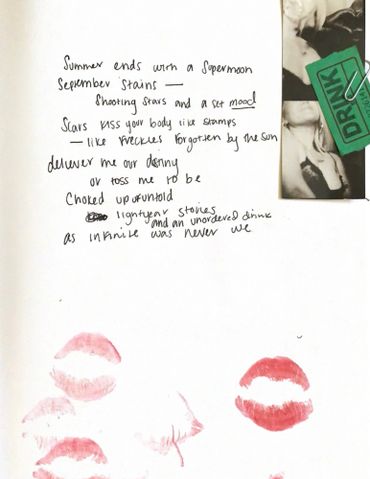 Summer ends with a Supermoon
September stains —
Shooting stars and a set mood
Scars kiss your body like stamps
— like freckles forgotten by the sun
deliever me our destiny
or toss me to be
Choked up of untold
lightyear stories
and an unordered drink
as infinite was never we
DRINK